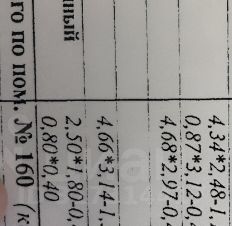 4,34*2,48-1.
0,87*3,12-0,4
4,68*2,97-0,4
4,66*3,14-1.
2,50*1,80-0,
0,80*0,40
нный
го по пом. № 160 (к